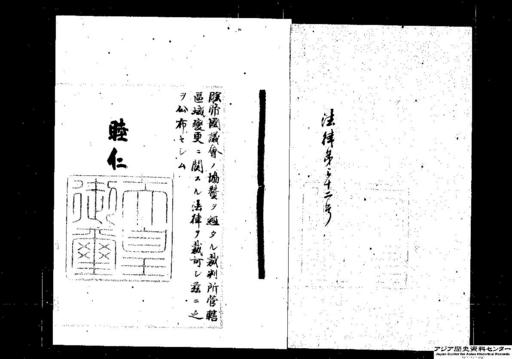 法律第三十二号
朕帝国議会ノ協賛ヲ経タル裁判所管轄
区域変更ニ関スル法律ヲ裁可シ茲ニ之
ヲ公布セシム
睦仁
天皇
御璽
アジア歴史資料センター
Japan Center for Asian Historical Records